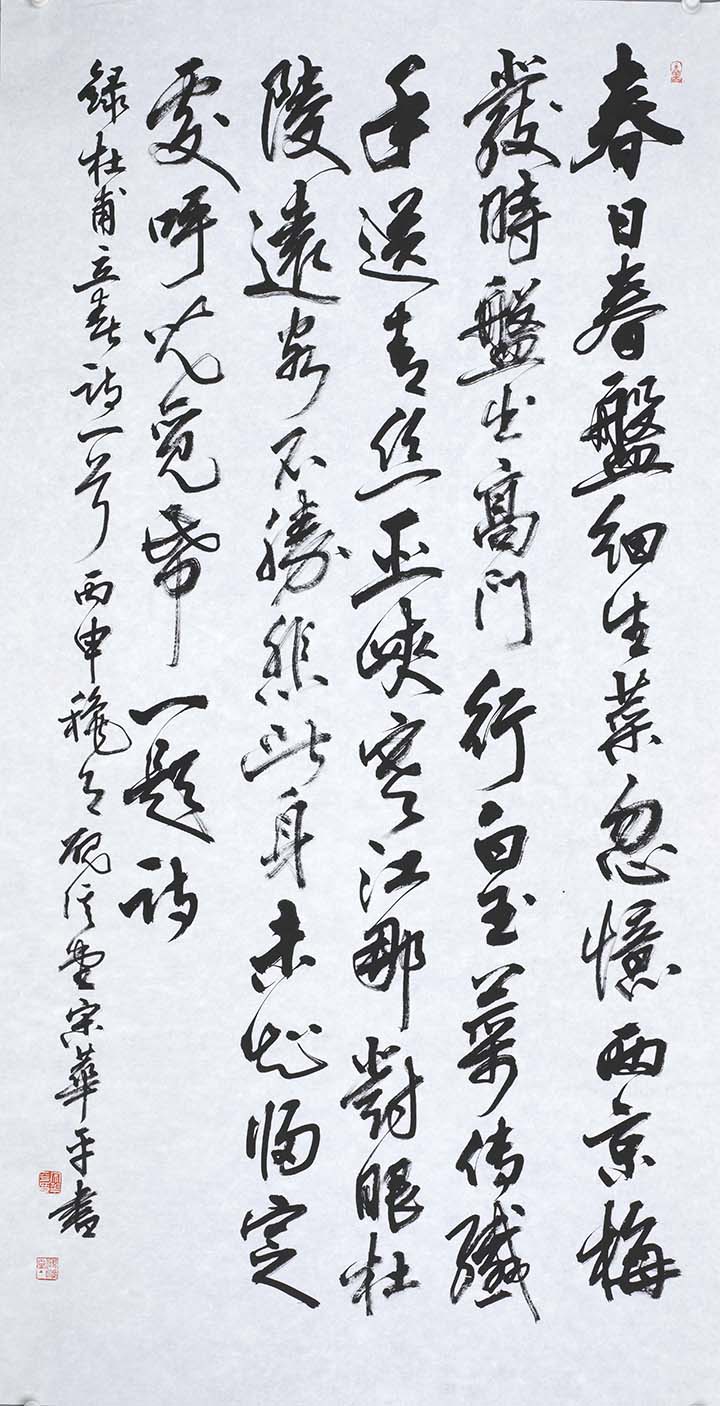 春日春盤細生菜忽憶兩京梅
發時盤出高門行白玉菜傳纖
手送青絲巫峽寒江那對眼杜
陵遠客不勝悲此身未知歸定
處呼兒覓帋一題詩
録杜甫立春詩一首丙申穐月硯堂宋華平書